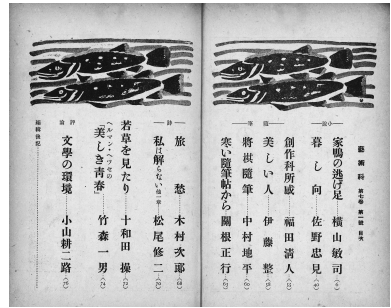 藝術科 第七卷 第一號 目次
小說
家鴨の逃げ足 橫山敏司
暮し向 佐野忠見
創作科所感 福田淸人
隨筆
美しい人 伊藤整
將棋隨筆 中村地平
寒い隨筆帖から 關根正行
詩
旅愁 木村次郎
私は解らない 他一章 松尾修二
若草を見たり 十和田操
ヘルマン・ヘッセの「美しき靑春」 竹森一男
評論
文學の環境 小山耕二路
編輯後記